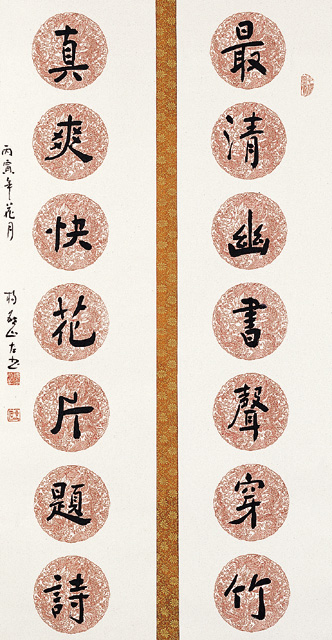 最清幽書聲穿竹
真爽快花片題詩
丙寅年花月